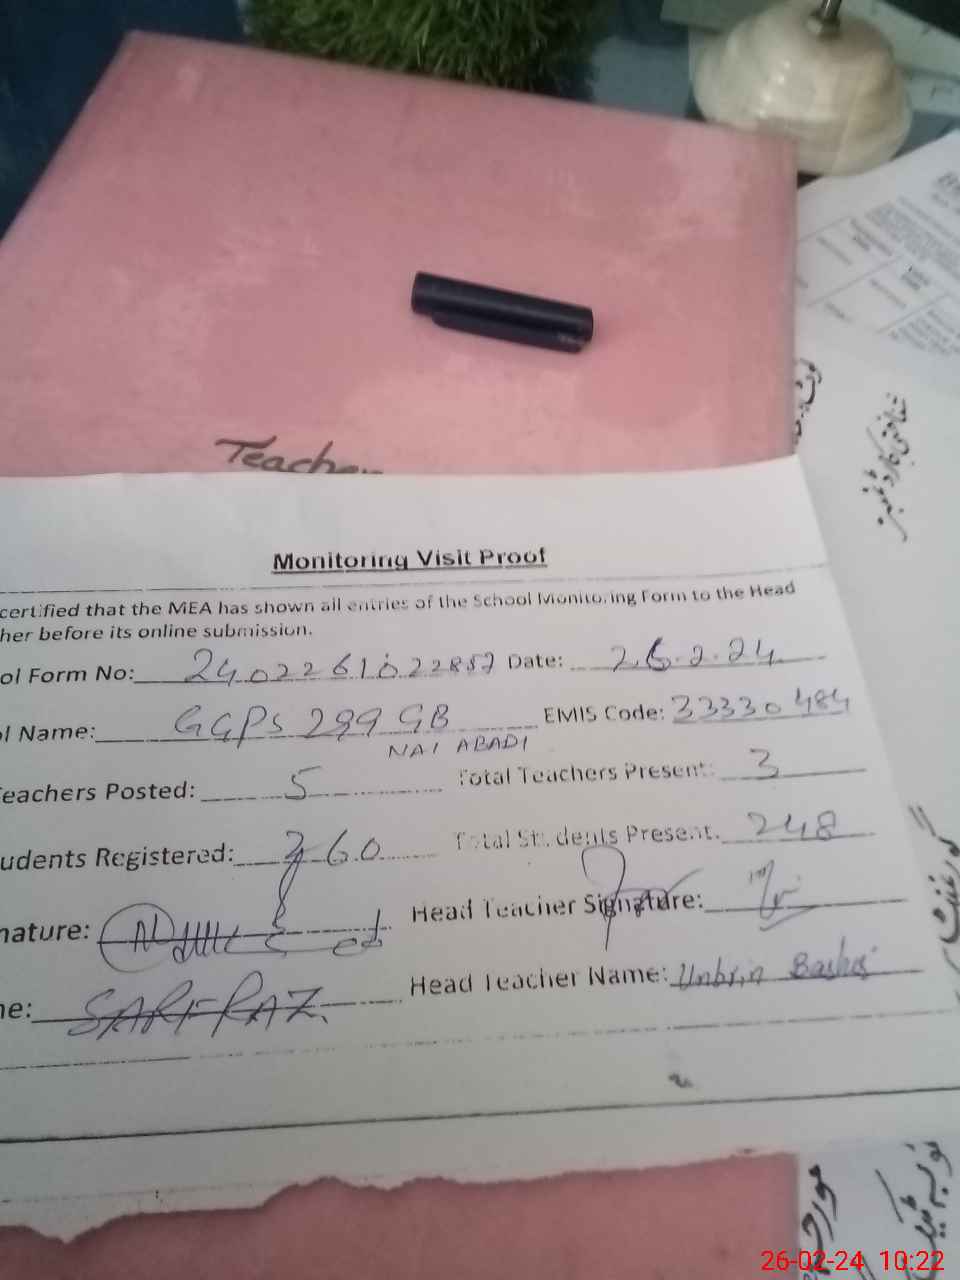 Teacher
Monitoring Visit Proof
certified that the MEA has shown all entries of the School Monitoring Form to the Head
her before its online submission.
ol Form No: 2402261022857 Date: 26.2.24
l Name: GGPS 299 GB EMIS Code: 33330484
NAI ABADI
eachers Posted: 5 Total Teachers Present: 3
udents Registered: 360 Total Students Present. 248
nature: Head Teacher Signature:
ne: SARFRAZ Head Teacher Name: Unbrin Bashir
شناختی کارڈ نمبر
گورنمنٹ
26-02-24 10:22